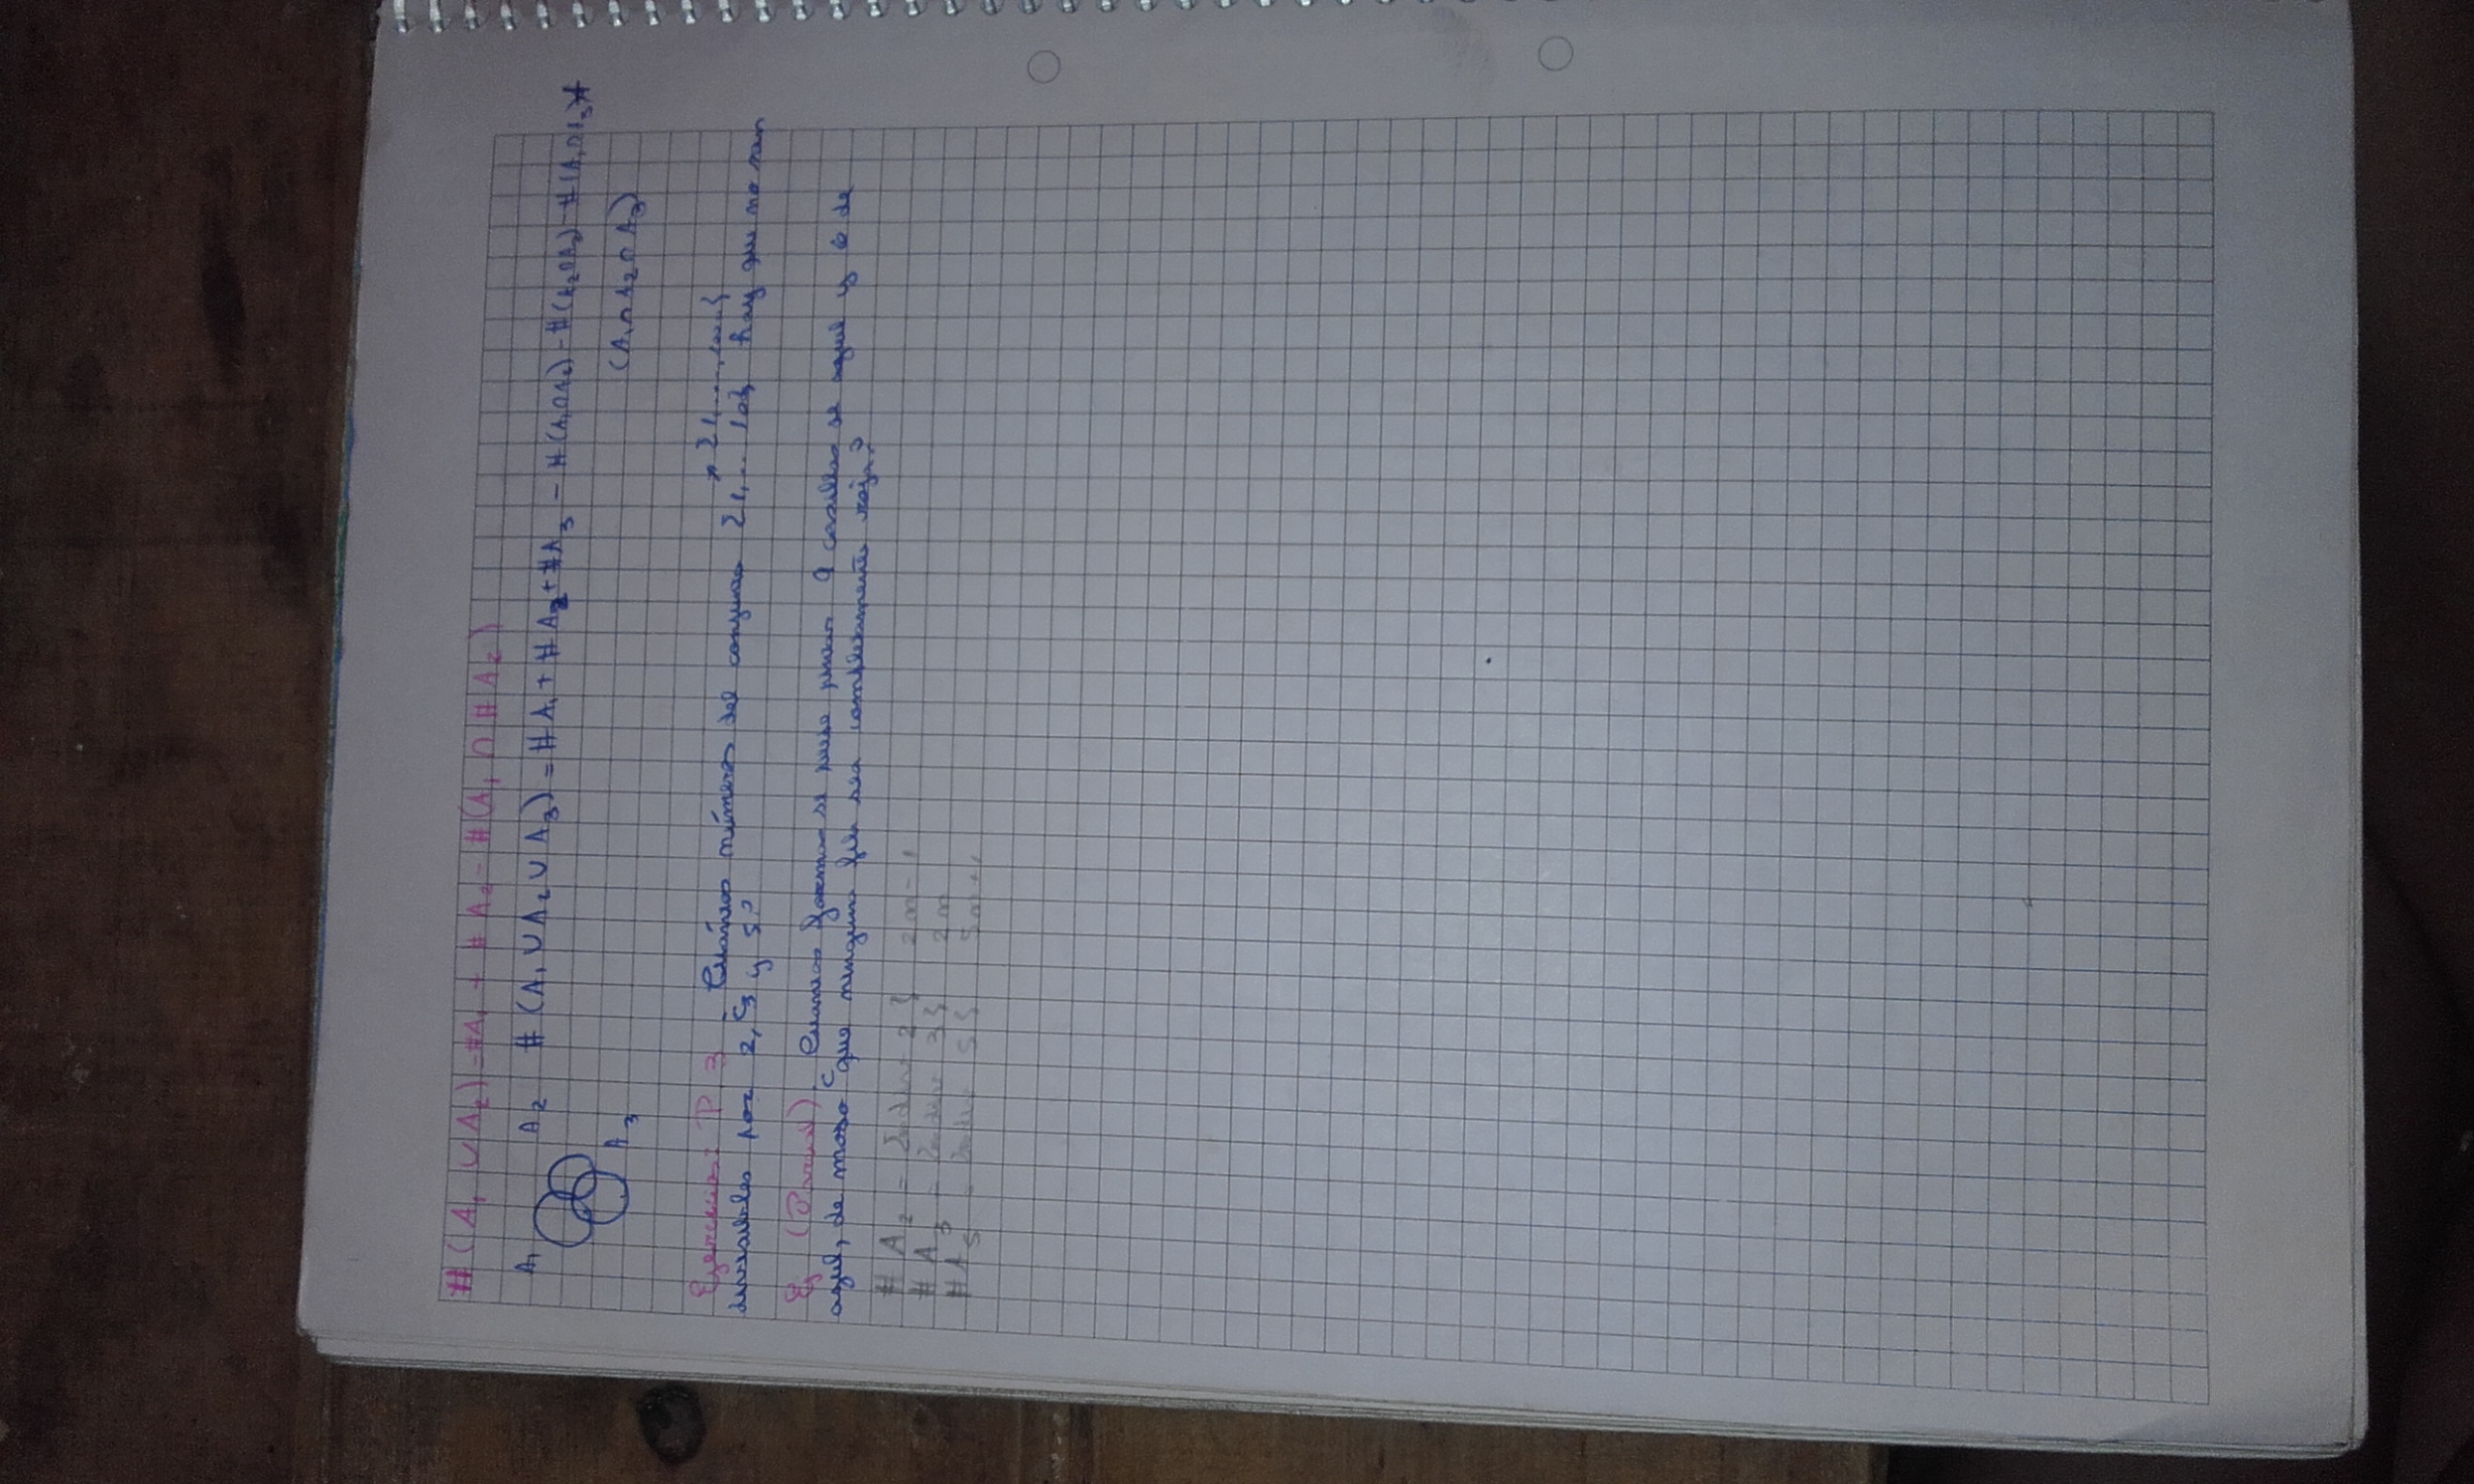 # (A₁ ∪ A₂) = #A₁ + # A₂ - #(A₁ ∩ # A₂)
A₁ A₂ # (A₁ ∪ A₂ ∪ A₃) = # A₁ + # A₂ + #A₃ - #(A₁∩A₂) - #(A₂∩A₃) - #(A₁∩A₃)+
A₃ (A₁∩A₂∩A₃)
{1,...,
Ejercicio: P 3 números del conjunto {1,... hay que no son
divisibles por 2, 3 y 5?
Ej formas se 9 casillas de azul y 6 de
azul, de modo que ninguna fila sea completamente roja?
# A₂ = 2} 2m-1
# A₃ = 3} 2m
#A₅ = 5} 5m+1